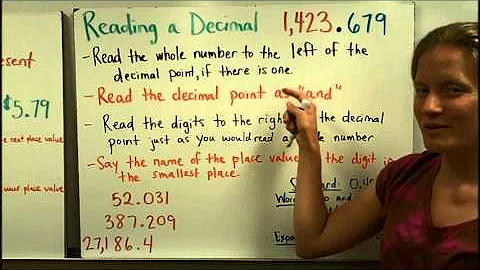 Reading a Decimal 1,423.679
- Read the whole number to the left of the
decimal point, if there is one.
- Read the decimal point as "and"
- Read the digits to the right the decimal
point just as you would read a whole number
- Say the name of the place value the digit in
the smallest place.
52.031
387.209
27,186.4
$5.79
the next place value
your place value